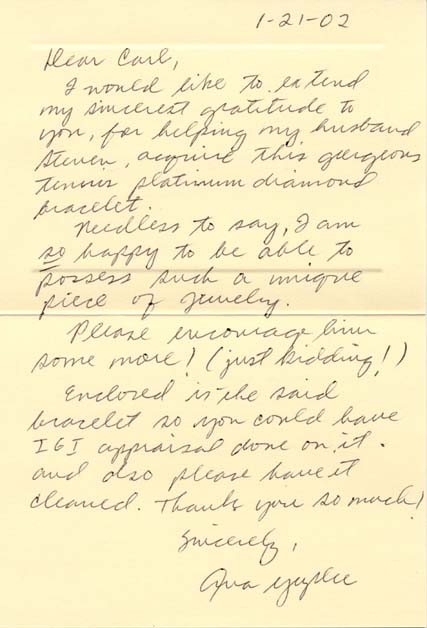 1-21-02
Dear Carl,
I would like to extend
my sincerest gratitude to
you, for helping my husband
Steven, acquire this gorgeous
tennis platinum diamond
bracelet.
Needless to say, I am
so happy to be able to
possess such a unique
piece of jewelry.
Please encourage him
some more! (just kidding!)
Enclosed is the said
bracelet so you could have
IGI appraisal done on it.
and also please have it
cleaned. Thank you so much!
Sincerely,